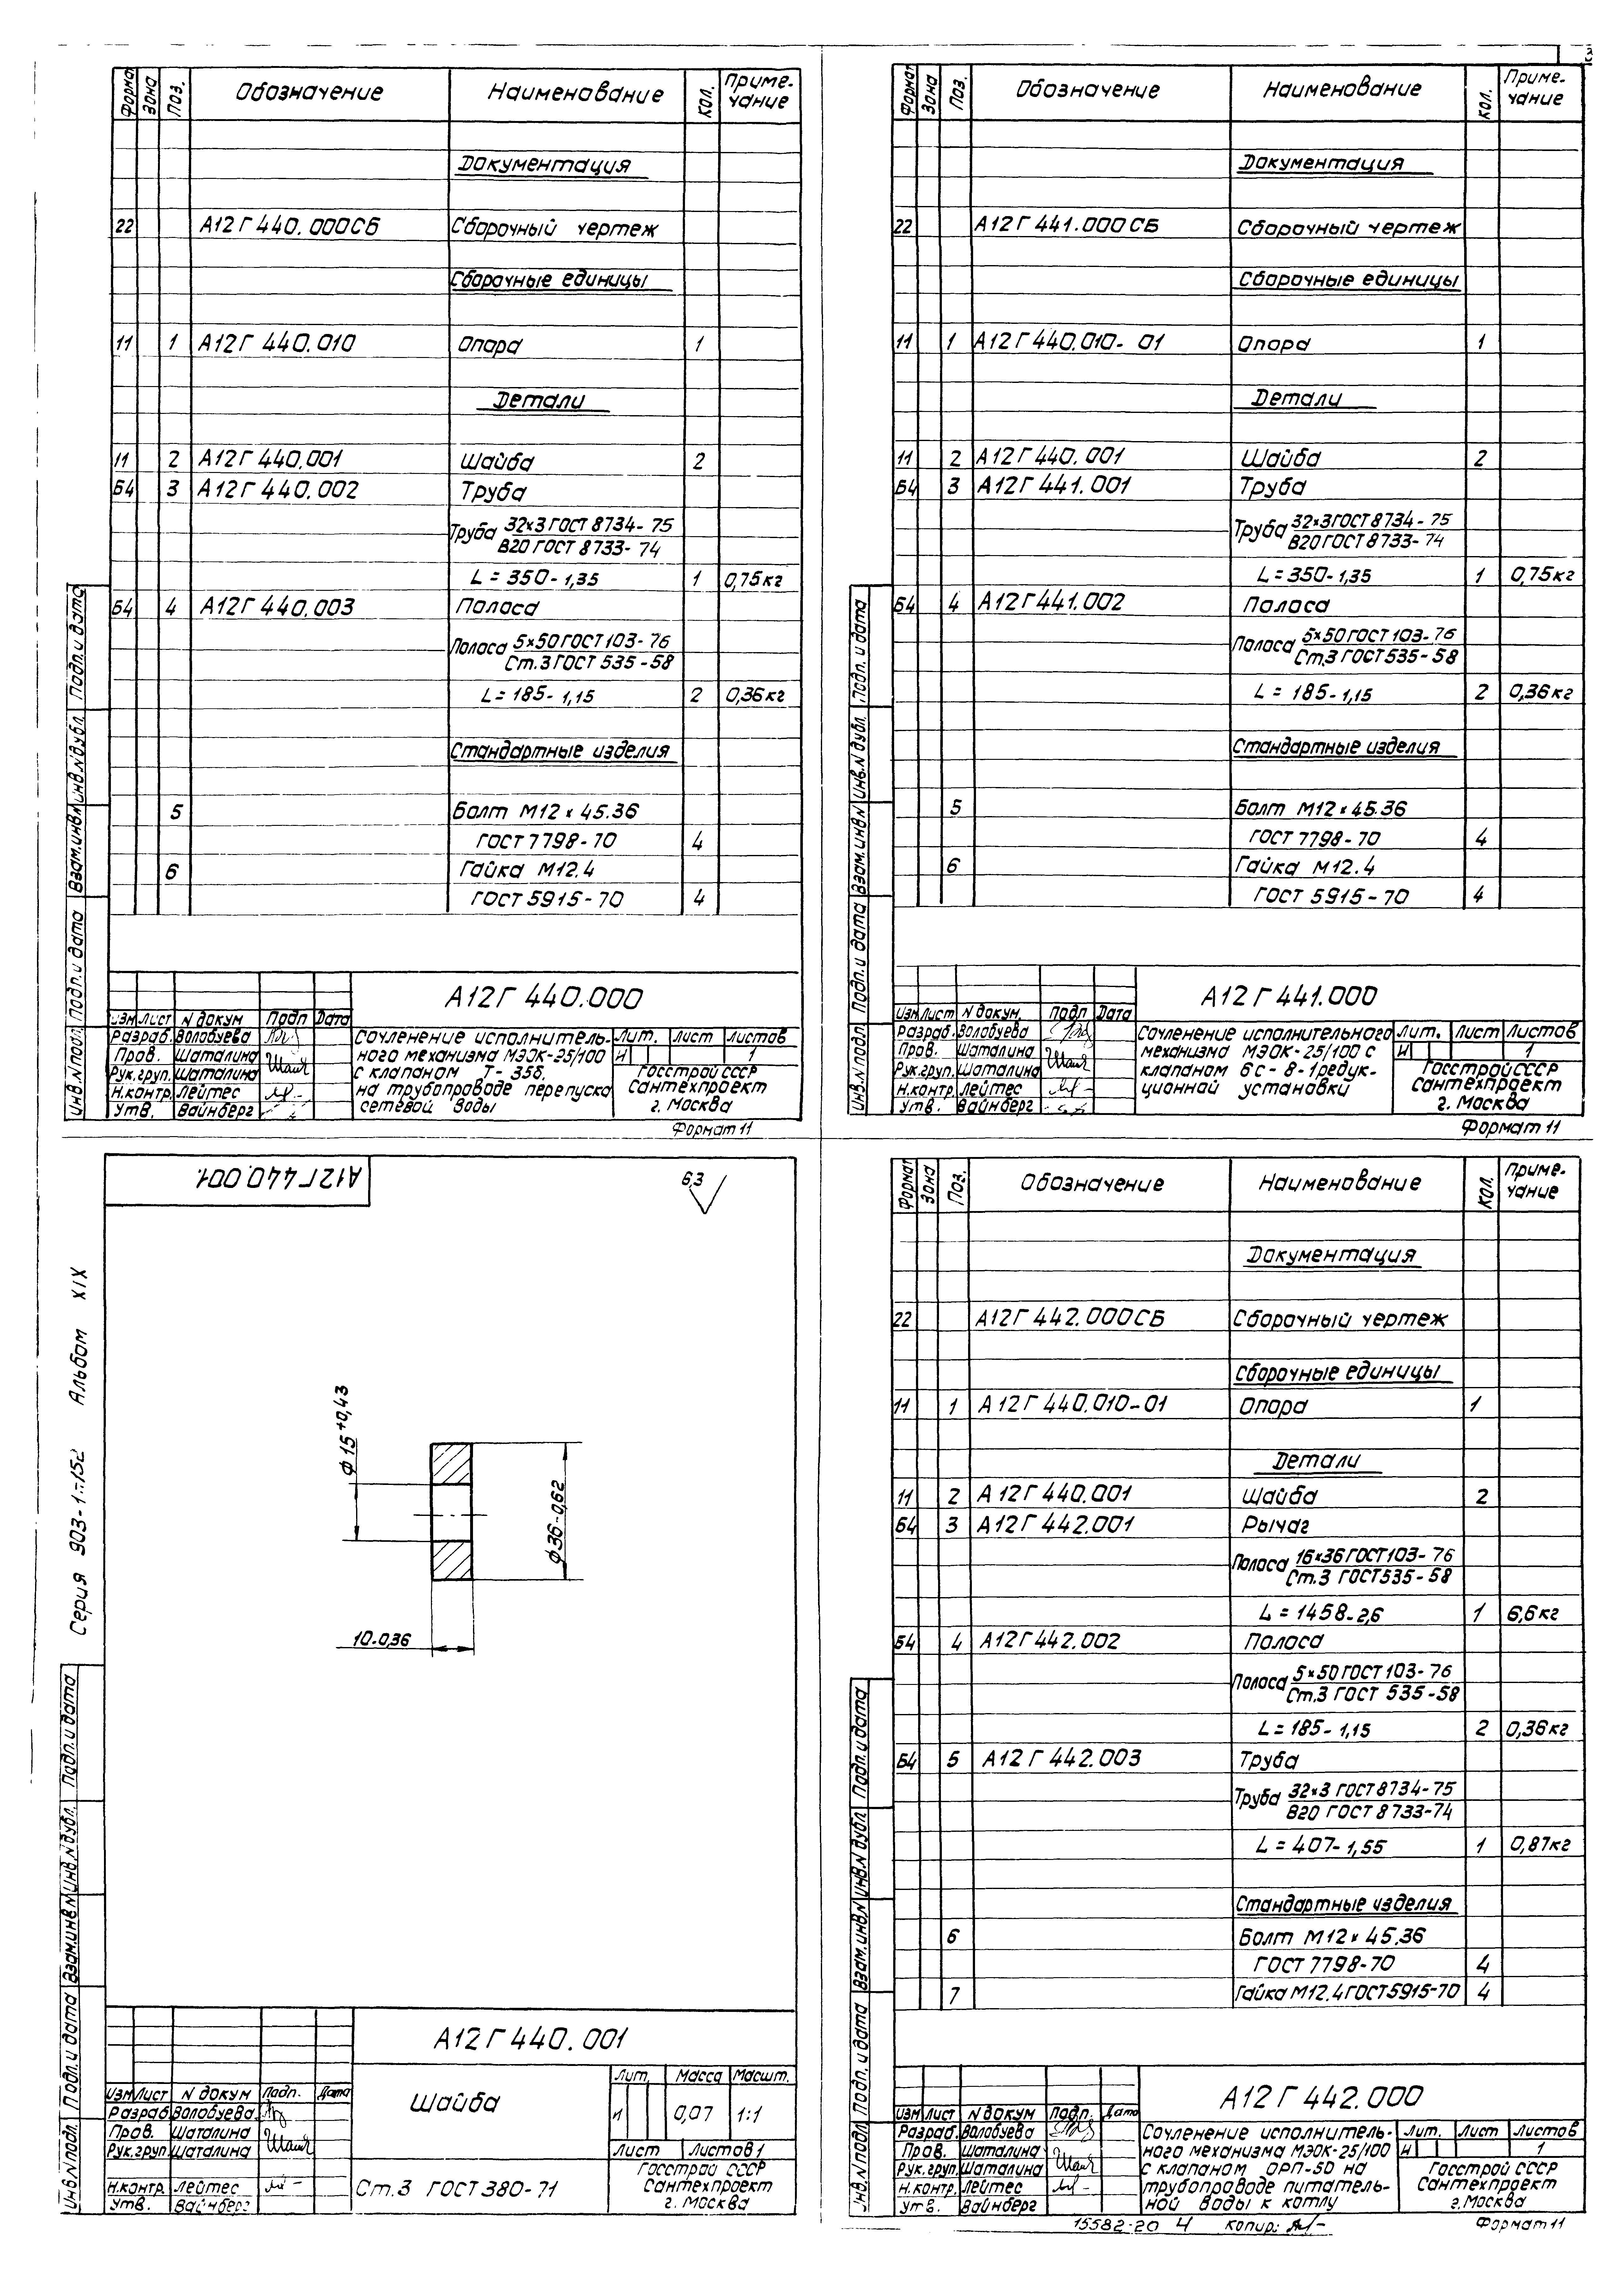 Формат Зона Поз. Обозначение Наименование Кол. Приме-
чание
Документация
22 А12Г 440.000СБ Сборочный чертеж
Сборочные единицы
11 1 А12Г 440.010 Опора 1
Детали
11 2 А12Г 440.001 Шайба 2
Б4 3 А12Г 440.002 Труба
Труба 32×3 ГОСТ 8734-75
В20 ГОСТ 8733-74
L=350-1,35 1 0,75кг
Б4 4 А12Г 440.003 Полоса
Полоса 5×50 ГОСТ 103-76
Ст.3 ГОСТ 535-58
L=185-1,15 2 0,36кг
Стандартные изделия
5 Болт М12×45.36
ГОСТ 7798-70 4
6 Гайка М12.4
ГОСТ 5915-70 4
Инв.N подл. Подп.и дата Взам.инв.N Инв.N дубл. Подп.и дата
А12Г 440.000
Изм Лист N докум Подп Дата
Разраб. Волобуева
Пров. Шаталина
Рук.груп. Шаталина
Н.контр. Лейтес
Утв. Вайнберг
Сочленение исполнитель-
ного механизма МЭОК-25/100
с клапаном Т-35б,
на трубопроводе перепуска
сетевой воды
Лит. Лист Листов
И 1
Госстрой СССР
Сантехпроект
г. Москва
Формат 11
Формат Зона Поз. Обозначение Наименование Кол. Приме-
чание
Документация
22 А12Г 441.000СБ Сборочный чертеж
Сборочные единицы
11 1 А12Г 440.010-01 Опора 1
Детали
11 2 А12Г 440.001 Шайба 2
Б4 3 А12Г 441.001 Труба
Труба 32×3 ГОСТ 8734-75
В20 ГОСТ 8733-74
L=350-1,35 1 0,75кг
Б4 4 А12Г 441.002 Полоса
Полоса 5×50 ГОСТ 103-76
Ст.3 ГОСТ 535-58
L=185-1,15 2 0,36кг
Стандартные изделия
5 Болт М12×45.36
ГОСТ 7798-70 4
6 Гайка М12.4
ГОСТ 5915-70 4
Инв.N подл. Подп.и дата Взам.инв.N Инв.N дубл. Подп.и дата
А12Г 441.000
Изм Лист N докум. Подп Дата
Разраб. Волобуева
Пров. Шаталина
Рук.груп. Шаталина
Н.контр. Лейтес
Утв. Вайнберг
Сочленение исполнительного
механизма МЭОК-25/100 с
клапаном 6с-8-1редук-
ционной установки
Лит. Лист Листов
И 1
Госстрой СССР
Сантехпроект
г. Москва
Формат 11
А12Г 440.001.
6,3
Серия 903-1 Альбом XIX
ф15+0,43
ф36-0,62
10-0,36
Инв.N подл. Подп.и дата Взам.инв.N Инв.N дубл. Подп.и дата
А12Г 440.001
Изм Лист N докум Подп. Дата
Разраб Волобуева.
Пров. Шаталина
Рук.груп. Шаталина
Н.контр. Лейтес
Утв. Вайнберг
Шайба
Лит. Масса Масшт.
И 0,07 1:1
Лист Листов 1
Ст.3 ГОСТ 380-71
Госстрой СССР
Сантехпроект
г. Москва
Формат Зона Поз. Обозначение Наименование Кол. Приме-
чание
Документация
22 А12Г 442.000СБ Сборочный чертеж
Сборочные единицы
11 1 А12Г 440.010-01 Опора 1
Детали
11 2 А12Г 440.001 Шайба 2
Б4 3 А12Г 442.001 Рычаг
Полоса 16×36 ГОСТ 103-76
Ст.3 ГОСТ 535-58
L=1458-2,6 1 6,6кг
Б4 4 А12Г 442.002 Полоса
Полоса 5×50 ГОСТ 103-76
Ст.3 ГОСТ 535-58
L=185-1,15 2 0,36кг
Б4 5 А12Г 442.003 Труба
Труба 32×3 ГОСТ 8734-75
В20 ГОСТ 8733-74
L=407-1,55 1 0,87кг
Стандартные изделия
6 Болт М12×45.36
ГОСТ 7798-70 4
7 Гайка М12.4 ГОСТ 5915-70 4
Инв.N подл. Подп.и дата Взам.инв.N Инв.N дубл. Подп.и дата
А12Г 442.000
Изм Лист N докум Подп. Дата
Разраб. Волобуева
Пров. Шаталина
Рук.груп. Шаталина
Н.контр. Лейтес
Утв. Вайнберг
Сочленение исполнитель-
ного механизма МЭОК-25/100
с клапаном ОРП-50 на
трубопроводе питатель-
ной воды к котлу
Лит. Лист Листов
И 1
Госстрой СССР
Сантехпроект
г. Москва
15582-20 4 Копир:
Формат 11